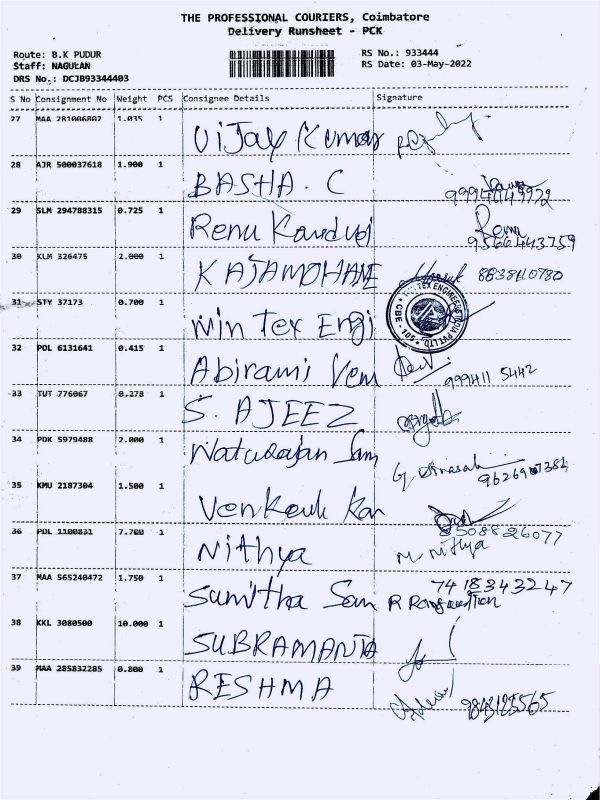 THE PROFESSIONAL COURIERS, Coimbatore
Delivery Runsheet - PCK
Route: B.K PUDUR
RS No.: 933444
Staff: NAGULAN
RS Date: 03-May-2022
DRS No.: DCJB93344403
S No Consignment No Weight PCS Consignee Details Signature
27 MAA 281006802 1.035 1 Vijay Kumar
28 AJR 500037618 1.900 1 BASHA. C
29 SLM 294788315 0.725 1 Renu Kandvei 9566443759
30 KLM 326475 2.000 1 KAJAMOHANE 8838110780
31 STY 37173 0.700 1 Win Tex Engi
32 POL 6131641 0.415 1 Abirami Vem 999411 5442
33 TUT 776067 0.278 1 S. AJEEZ
34 PDK 5979488 2.000 1 Naturajan Sam
35 KMU 2187304 1.500 1 Venkauk Kan
36 PDL 1100831 7.700 1 Nithya 8508826077
M. Nithya
37 MAA 565240472 1.750 1 Sumitha Sam 7418343247
38 KKL 3080500 10.000 1 SUBRAMANIA
39 MAA 285832285 0.800 1 RESHMA 9843125565